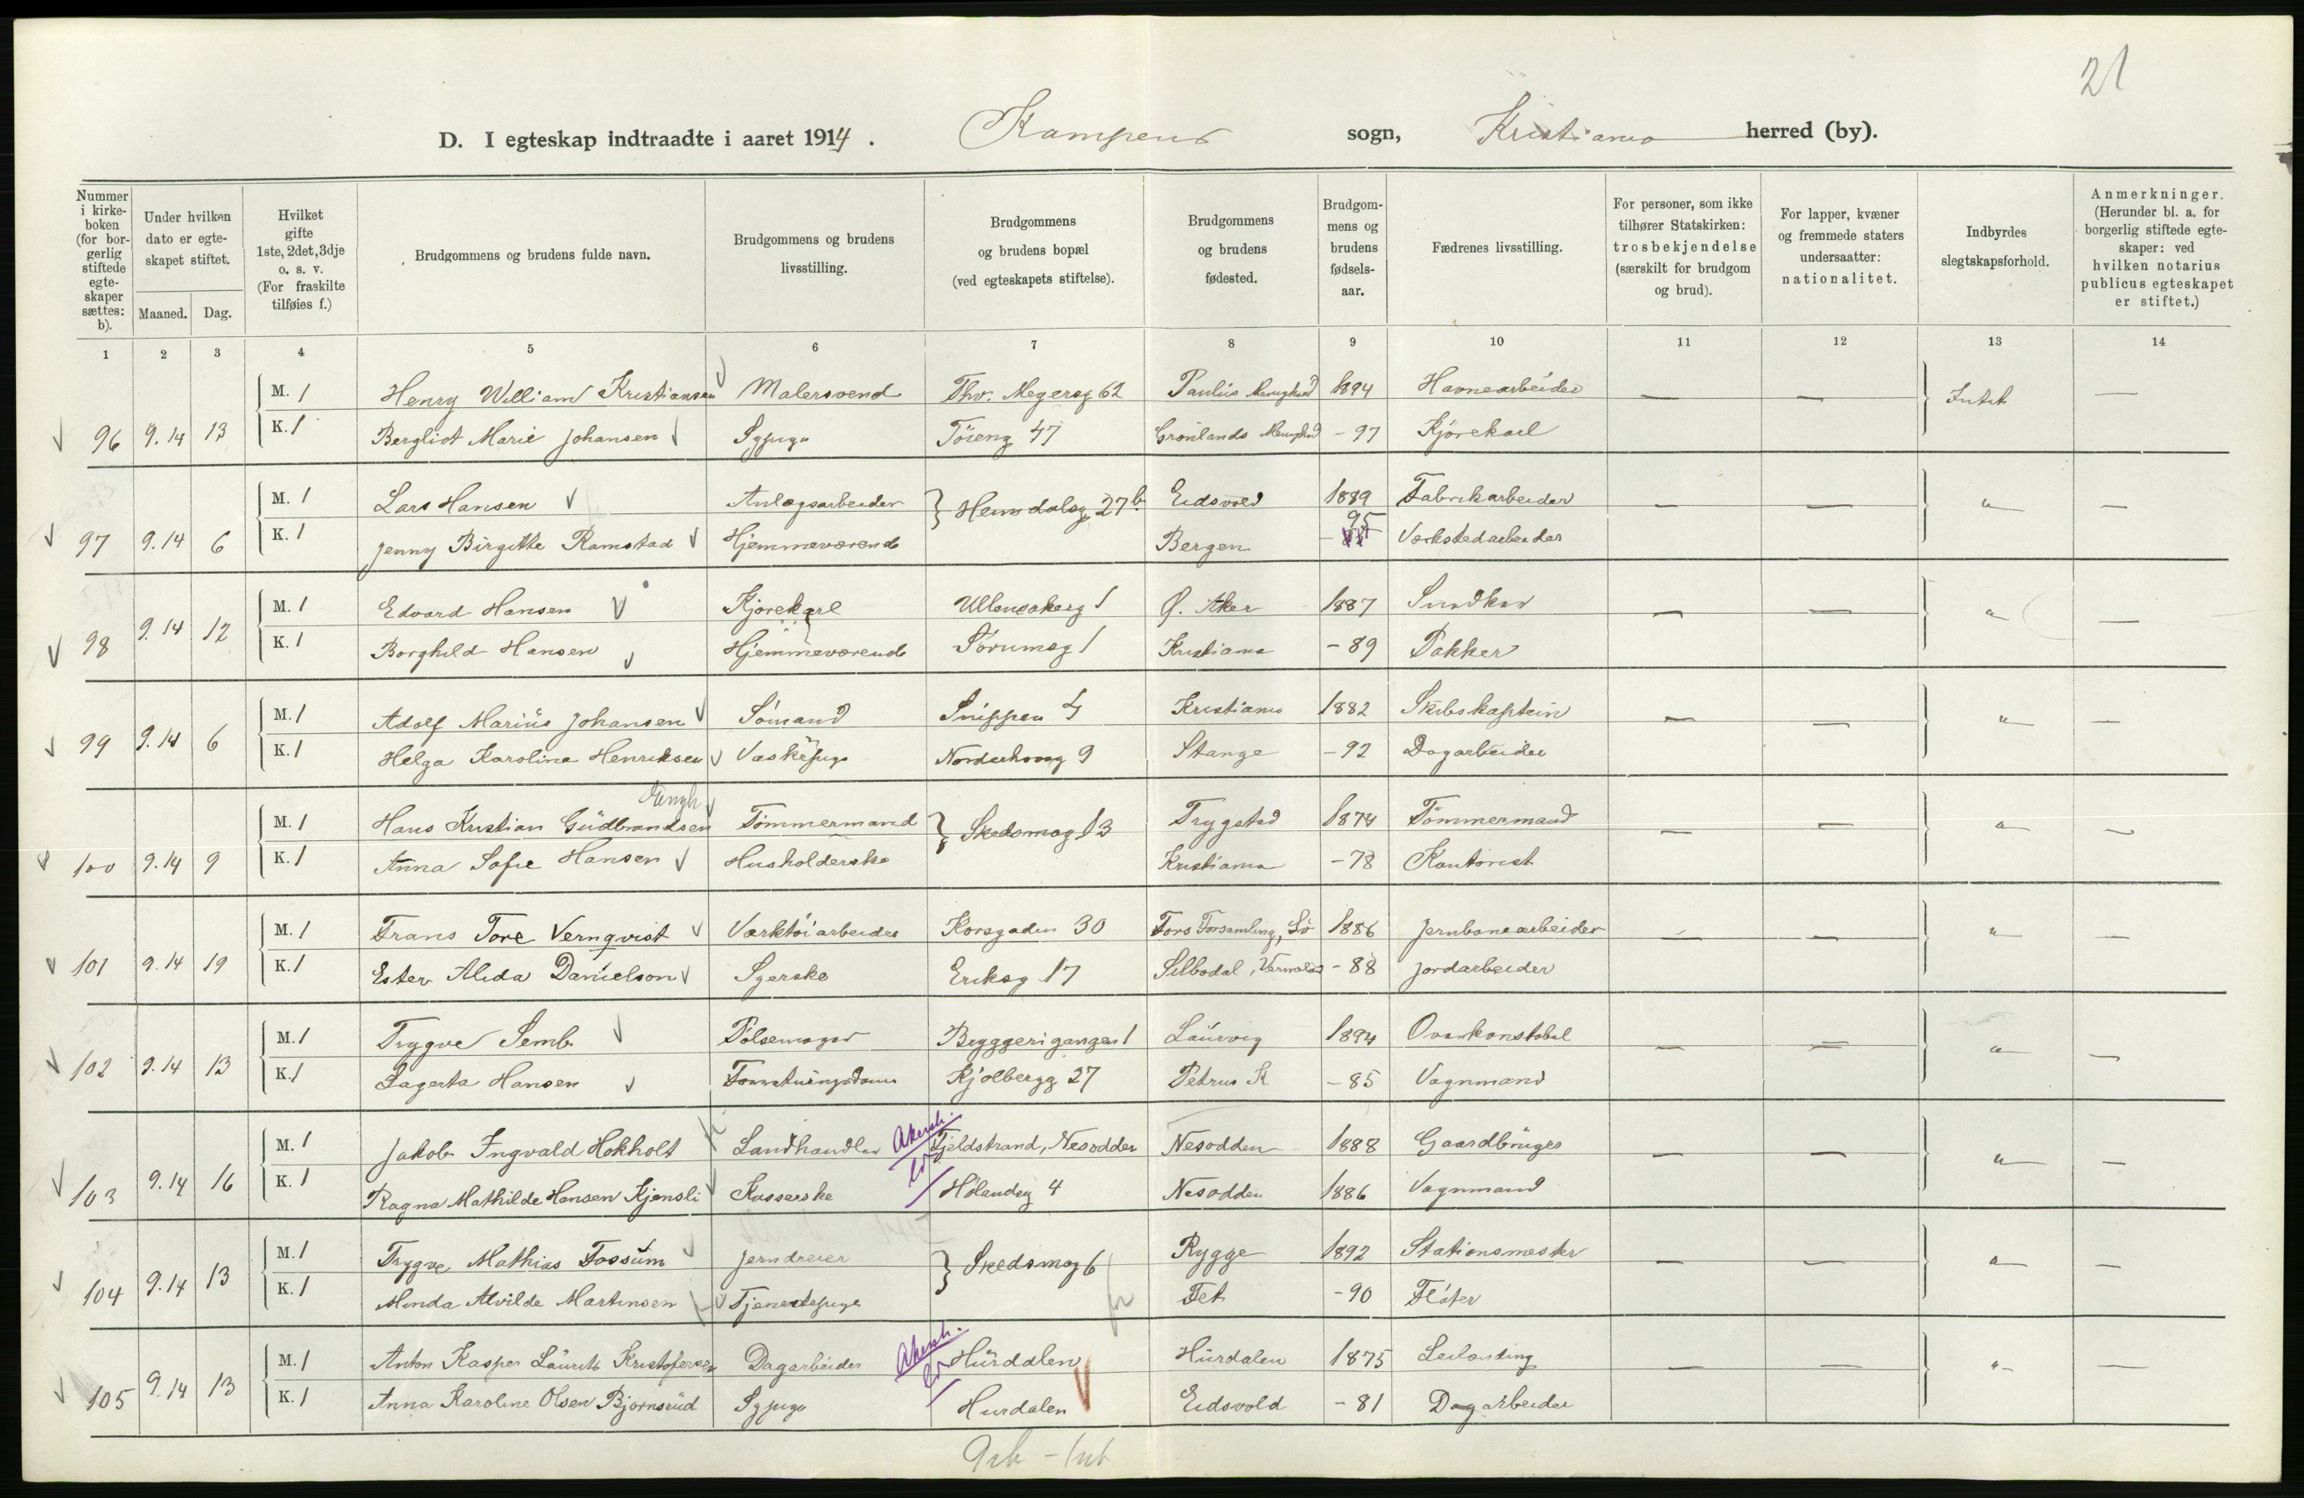 21
D. I egteskap indtraadte i aaret 1914. Kampens sogn, Kristiania herred (by).
Nummer i kirkeboken (for borgerlig stiftede egteskaper sættes: b).
Under hvilken dato er egteskapet stiftet.
Maaned. Dag.
Hvilket gifte 1ste, 2det, 3dje o. s. v. (For fraskilte tilføies f.)
Brudgommens og brudens fulde navn.
Brudgommens og brudens livsstilling.
Brudgommens og brudens bopæl (ved egteskapets stiftelse).
Brudgommens og brudens fødested.
Brudgommens og brudens fødselsaar.
Fædrenes livsstilling.
For personer, som ikke tilhører Statskirken: trosbekjendelse (særskilt for brudgom og brud).
For lapper, kvæner og fremmede staters undersaatter: nationalitet.
Indbyrdes slegtskapsforhold.
Anmerkninger. (Herunder bl. a. for borgerlig stiftede egteskaper: ved hvilken notarius publicus egteskapet er stiftet.)
1 2 3 4 5 6 7 8 9 10 11 12 13 14
M. 1 Henry William Kristiansen Malersvend Thv. Meyersg 62 Paulus Menighed 1894 Havnearbeider — — Intet —
96 9.14 13 K. 1 Bergliot Marie Johansen Sypige Töieng 47 Grönlands Menighed - 97 Kjörekarl
M. 1 Lars Hansen Anlægsarbeider Heimdalsg 27b Eidsvold 1889 Fabrikarbeider — — " —
97 9.14 6 K. 1 Jenny Birgitte Ramstad Hjemmeværende Bergen - 95 Værkstedarbeider
M. 1 Edvard Hansen Kjörekarl Ullensakerg 1 Ø. Aker 1887 Snedker — — " —
98 9.14 12 K. 1 Borghild Hansen Hjemmeværende Sörumsg 1 Kristiania - 89 Pakker
M. 1 Adolf Marius Johansen Sömand Snippen 4 Kristiania 1882 Skibskaptein — — " —
99 9.14 6 K. 1 Helga Karoline Henriksen Vaskepige Norderhovg 9 Stange - 92 Dagarbeider
M. 1 Hans Kristian Gudbrandsen Tömmermand Skedsmog 13 Trygstad 1874 Tömmermand — — " —
100 9.14 9 K. 1 Anna Sofie Hansen Husholderske Kristiania - 78 Kontorist
M. 1 Frans Tore Vernqvist Værktöiarbeider Korsgaden 30 Fors Forsamling, Sv 1886 Jernbanearbeider — — " —
101 9.14 19 K. 1 Ester Alida Danielson Syerske Eriksg 17 Silbodal, Vermland - 88 Jordarbeider
M. 1 Trygve Semb Pölsemager Byggerigangen 1 Laurvig 1894 Overkonstabel — — " —
102 9.14 13 K. 1 Lagerta Hansen Forretningsdame Kjölbergg 27 Petrus K - 85 Vognmand
M. 1 Jakob Ingvald Hokholt Landhandler Akersh. Fjeldstrand, Nesodden Nesodden 1888 Gaardbruger — — " —
103 9.14 16 K. 1 Ragna Mathilde Hansen Kjensli Kasserske Hölandsg 4 Nesodden 1886 Vognmand
M. 1 Trygve Mathias Fossum Jerndreier Skedsmog 6 Rygge 1892 Stationsmester — — " —
104 9.14 13 K. 1 Minda Alvilde Martinsen Tjenestepige Fet - 90 Flöter
M. 1 Anton Kasper Laurits Kristofersen Dagarbeider Akersh. Hurdalen Hurdalen 1875 Leilending — — " —
105 9.14 13 K. 1 Anna Karoline Olsen Bjornsrud Sypige Hurdalen Eidsvold - 81 Dagarbeider